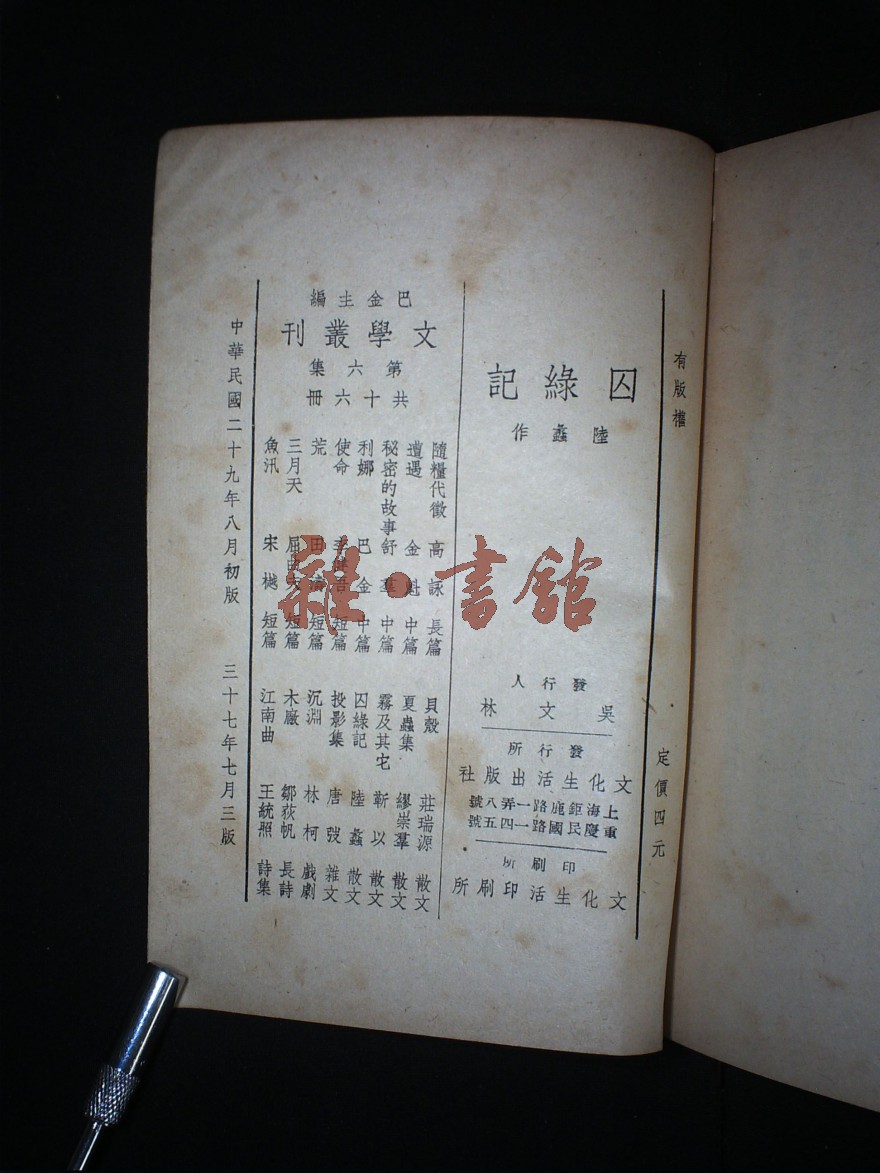 有版權
定價四元
囚綠記
陸蠡作
發行人
吳文林
發行所
文化生活出版社
上海鉅鹿路一弄八號
重慶民國路一四五號
印刷所
文化生活印刷所
巴金主編
文學叢刊
第六集
共十六冊
隨糧代徵 高詠 長篇
遭遇 金魁 中篇
秘密的故事 舒羣 中篇
利娜 巴金 中篇
使命 李健吾 短篇
荒 田濤 短篇
三月天 屈曲夫 短篇
魚汛 宋樾 短篇
貝殼 莊瑞源 散文
夏蟲集 繆崇羣 散文
霧及其它 靳以 散文
囚綠記 陸蠡 散文
投影集 唐弢 雜文
沉淵 林柯 戲劇
木廠 鄒荻帆 長詩
江南曲 王統照 詩集
中華民國二十九年八月初版 三十七年七月三版
雜·書館